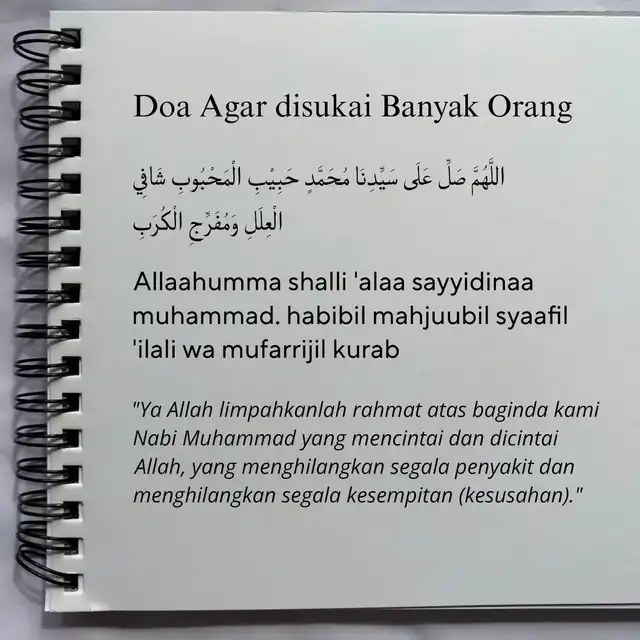 Doa Agar disukai Banyak Orang
اللَّهُمَّ صَلِّ عَلَى سَيِّدِنَا مُحَمَّدٍ حَبِيْبِ الْمَحْبُوبِ شَافِي
الْعِلَلِ وَمُفَرِّجِ الْكُرَبِ
Allaahumma shalli 'alaa sayyidinaa
muhammad. habibil mahjuubil syaafil
'ilali wa mufarrijil kurab
"Ya Allah limpahkanlah rahmat atas baginda kami
Nabi Muhammad yang mencintai dan dicintai
Allah, yang menghilangkan segala penyakit dan
menghilangkan segala kesempitan (kesusahan)."